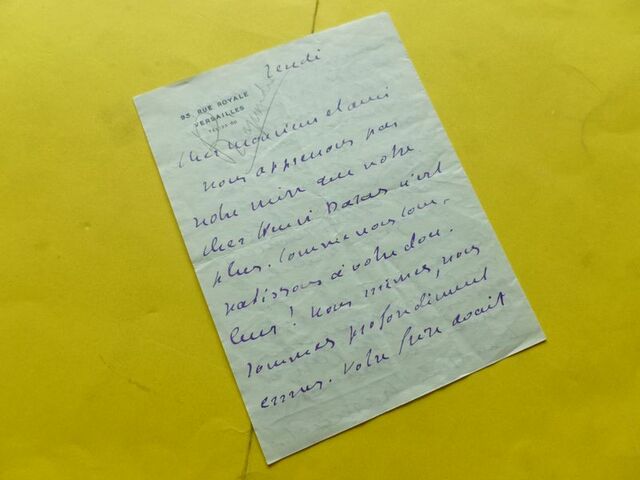 93, RUE ROYALE
VERSAILLES
Cher Monsieur et ami
nous apprenons par
notre mire que votre
cher Henri Dacas n'est
plus. Comme nous com-
patissons à votre dou-
leur ! Nous mêmes, nous
sommes profondément
émus. Votre frère avait